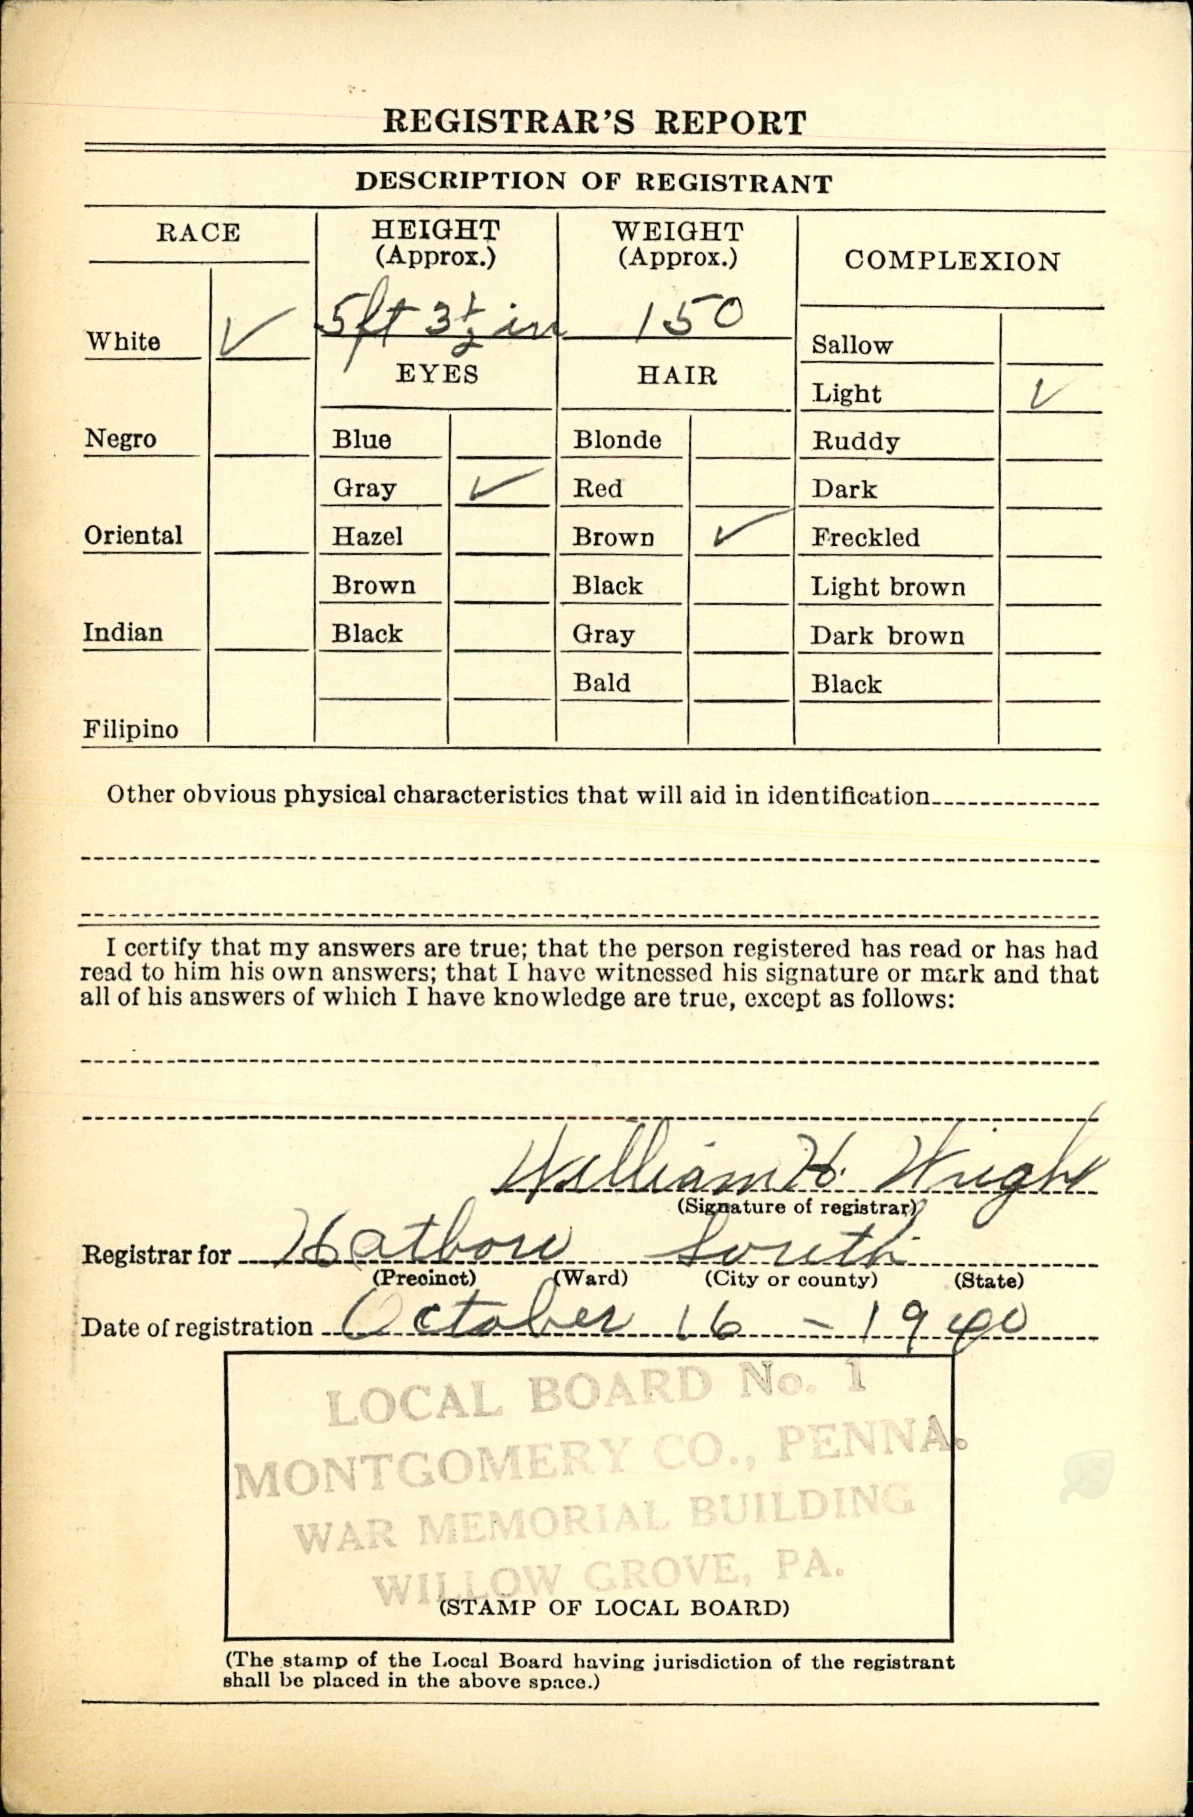 REGISTRAR'S REPORT
DESCRIPTION OF REGISTRANT
RACE
HEIGHT
(Approx.)
WEIGHT
(Approx.)
COMPLEXION
5ft 3½ in
150
White ✓
EYES
HAIR
Sallow
Light ✓
Negro
Blue
Blonde
Ruddy
Gray ✓
Red
Dark
Oriental
Hazel
Brown ✓
Freckled
Brown
Black
Light brown
Indian
Black
Gray
Dark brown
Bald
Black
Filipino
Other obvious physical characteristics that will aid in identification
I certify that my answers are true; that the person registered has read or has had
read to him his own answers; that I have witnessed his signature or mark and that
all of his answers of which I have knowledge are true, except as follows:
William H. Wright
(Signature of registrar)
Registrar for Hatboro South
(Precinct) (Ward) (City or county) (State)
Date of registration October 16 - 1940
LOCAL BOARD No. 1
MONTGOMERY CO., PENNA.
WAR MEMORIAL BUILDING
WILLOW GROVE, PA.
(STAMP OF LOCAL BOARD)
(The stamp of the Local Board having jurisdiction of the registrant
shall be placed in the above space.)